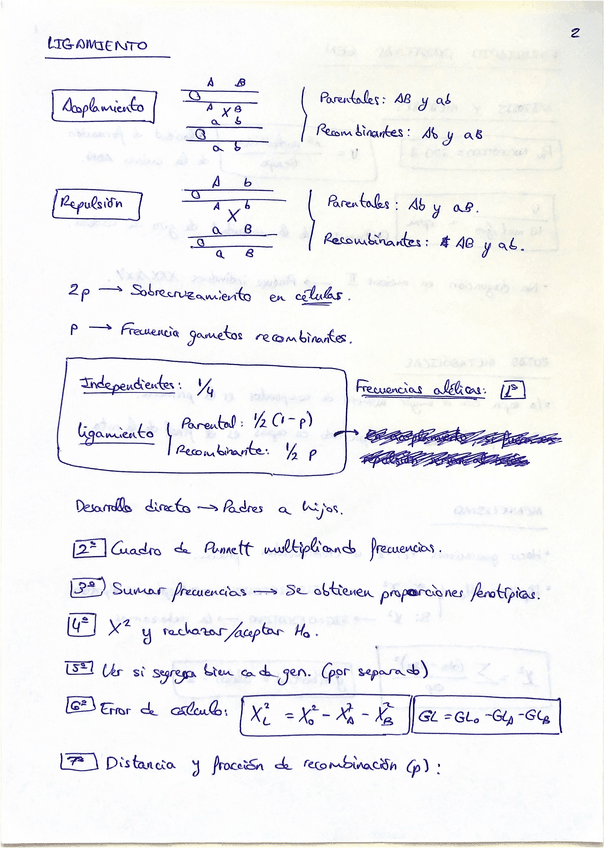 2
LIGAMIENTO
A B
Acoplamiento
A X B
a b
a b
Parentales: AB y ab
Recombinantes: Ab y aB
A b
Repulsión
A X b
a B
a B
Parentales: Ab y aB.
Recombinantes: AB y ab.
2p → Sobrecruzamiento en células.
p → Frecuencia gametos recombinantes.
Independientes: 1/4
Ligamiento
Parental: 1/2 (1-p)
Recombinante: 1/2 p
Frecuencias alélicas: 1º
Desarrollo directo → Padres a hijos.
2º Cuadro de Punnett multiplicando frecuencias.
3º Sumar frecuencias → Se obtienen proporciones fenotípicas.
4º X² y rechazar/aceptar H₀.
5º Ver si segrega bien cada gen. (por separado)
6º Error de cálculo: X²L = X²o - X²A - X²B GL = GLo - GLA - GLB
7º Distancia y fracción de recombinación (p):